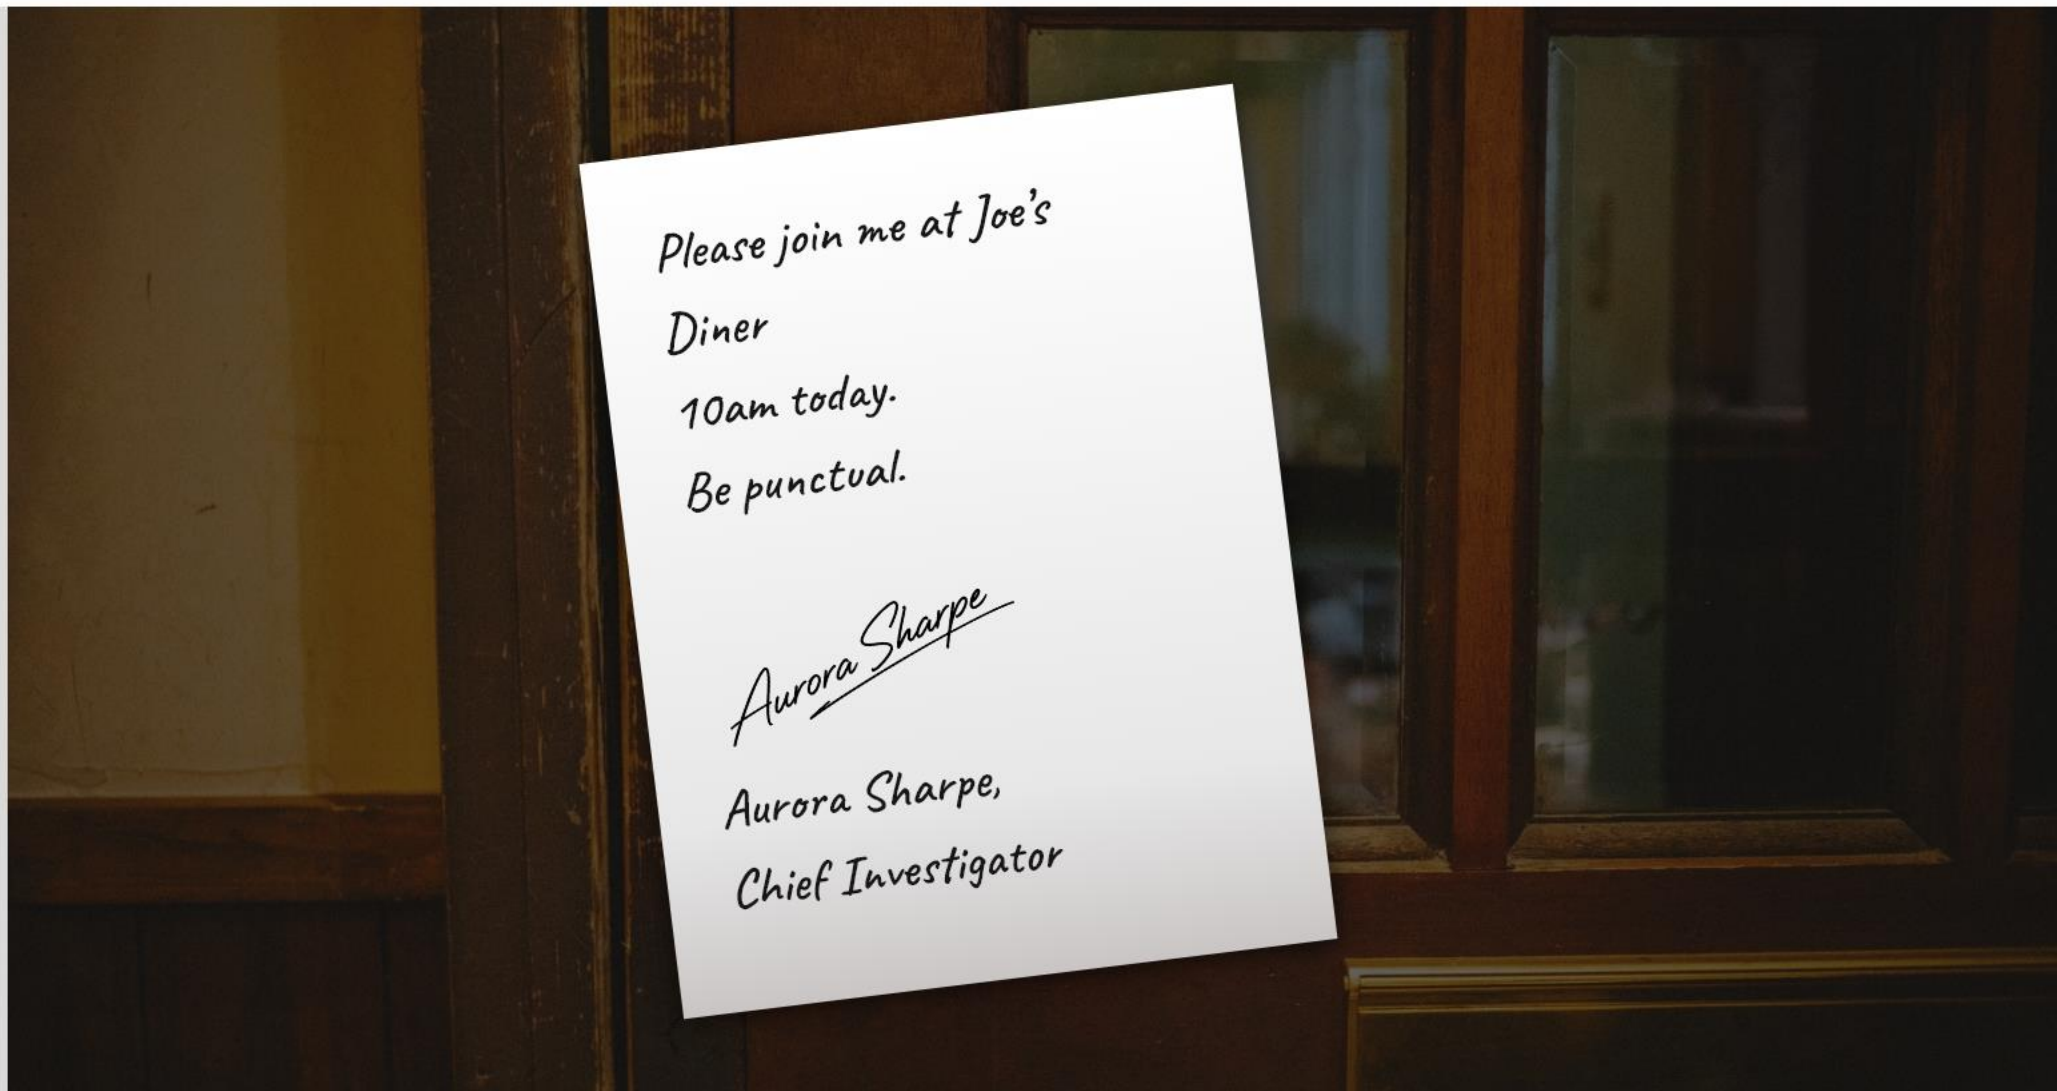 Please join me at Joe's
Diner
10am today.
Be punctual.
Aurora Sharpe
Aurora Sharpe,
Chief Investigator